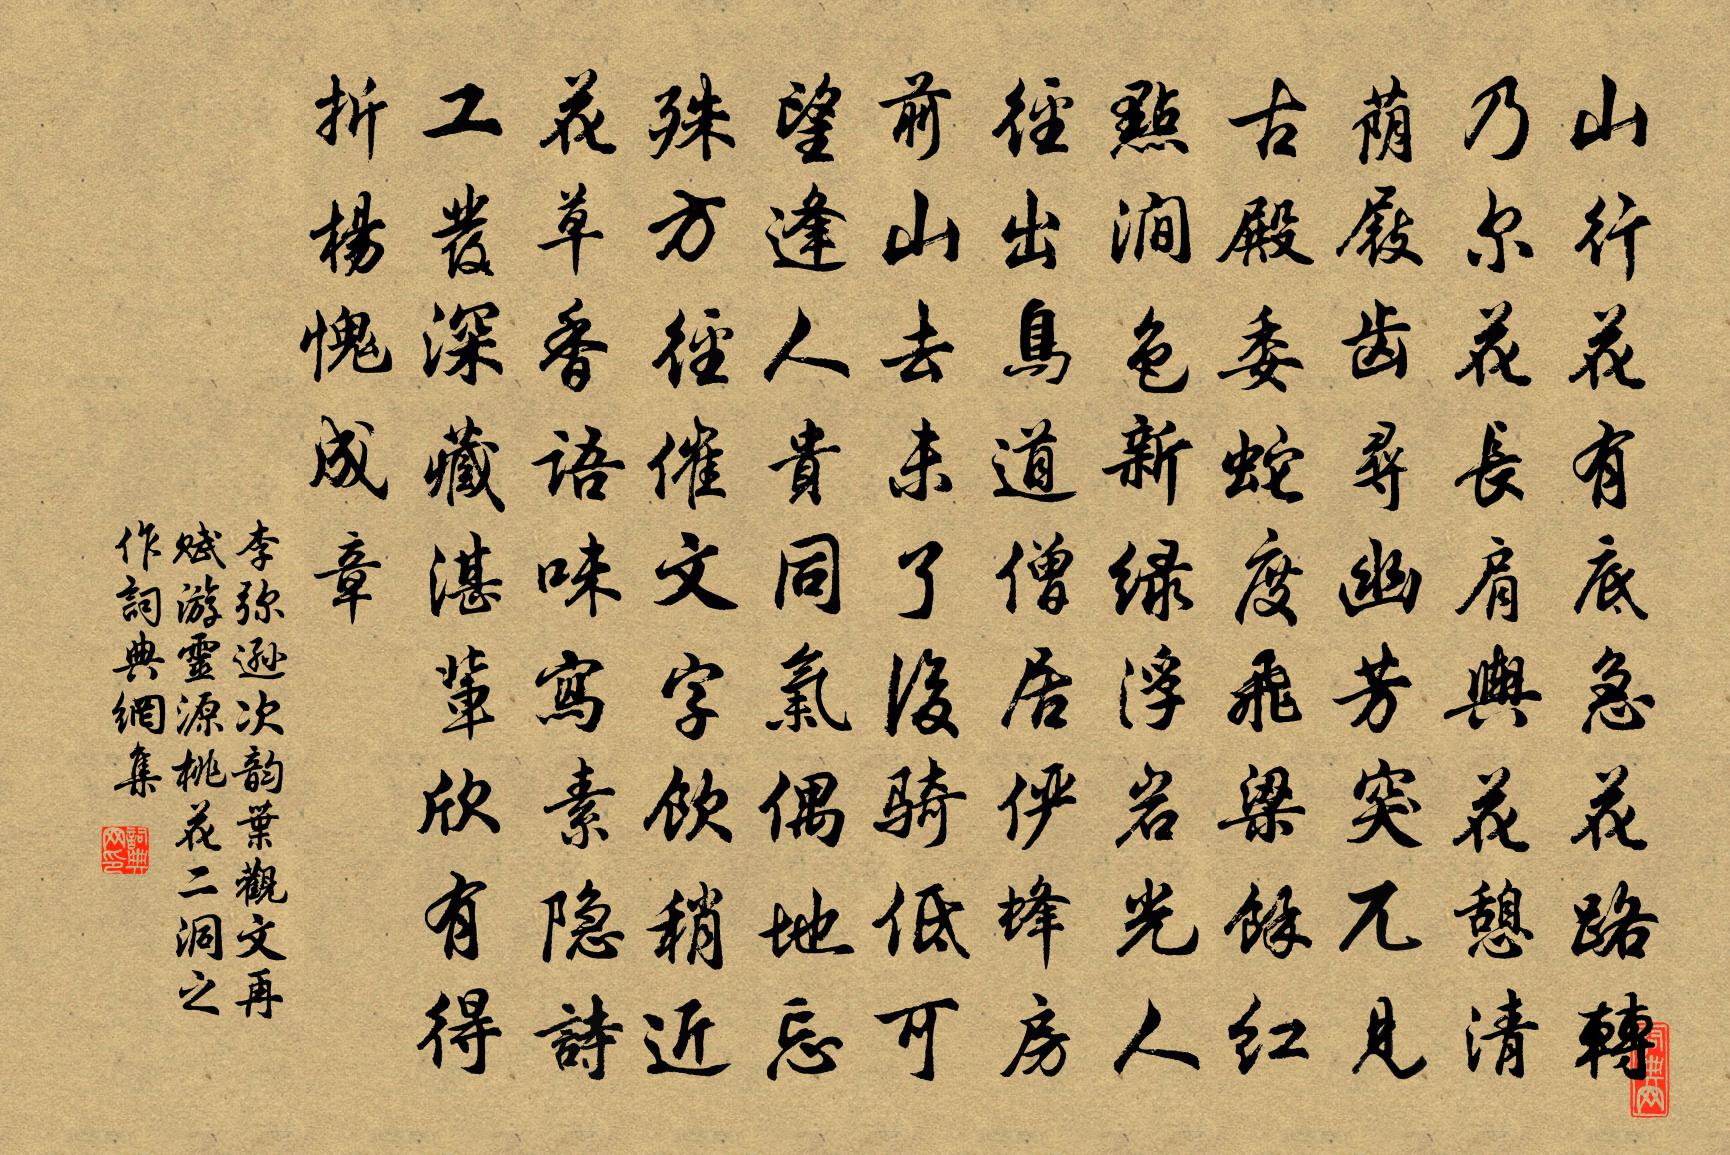 山行花有底急花路轉
乃尔花長肩輿花憩清
荫屐齿尋幽芳突兀見
古殿委蛇度飛梁餘红
點澗色新绿浮岩光人
徑出鳥道僧居俨蜂房
前山去未了後骑低可
望逢人貴同氣偶地忘
殊方徑催文字飲稍近
花草香語味寫素隐詩
工發深藏湛輩欣有得
折楊愧成章
李弥逊次韵葉觀文再
赋游靈源桃花二洞之
作詞典網集
詞典网印